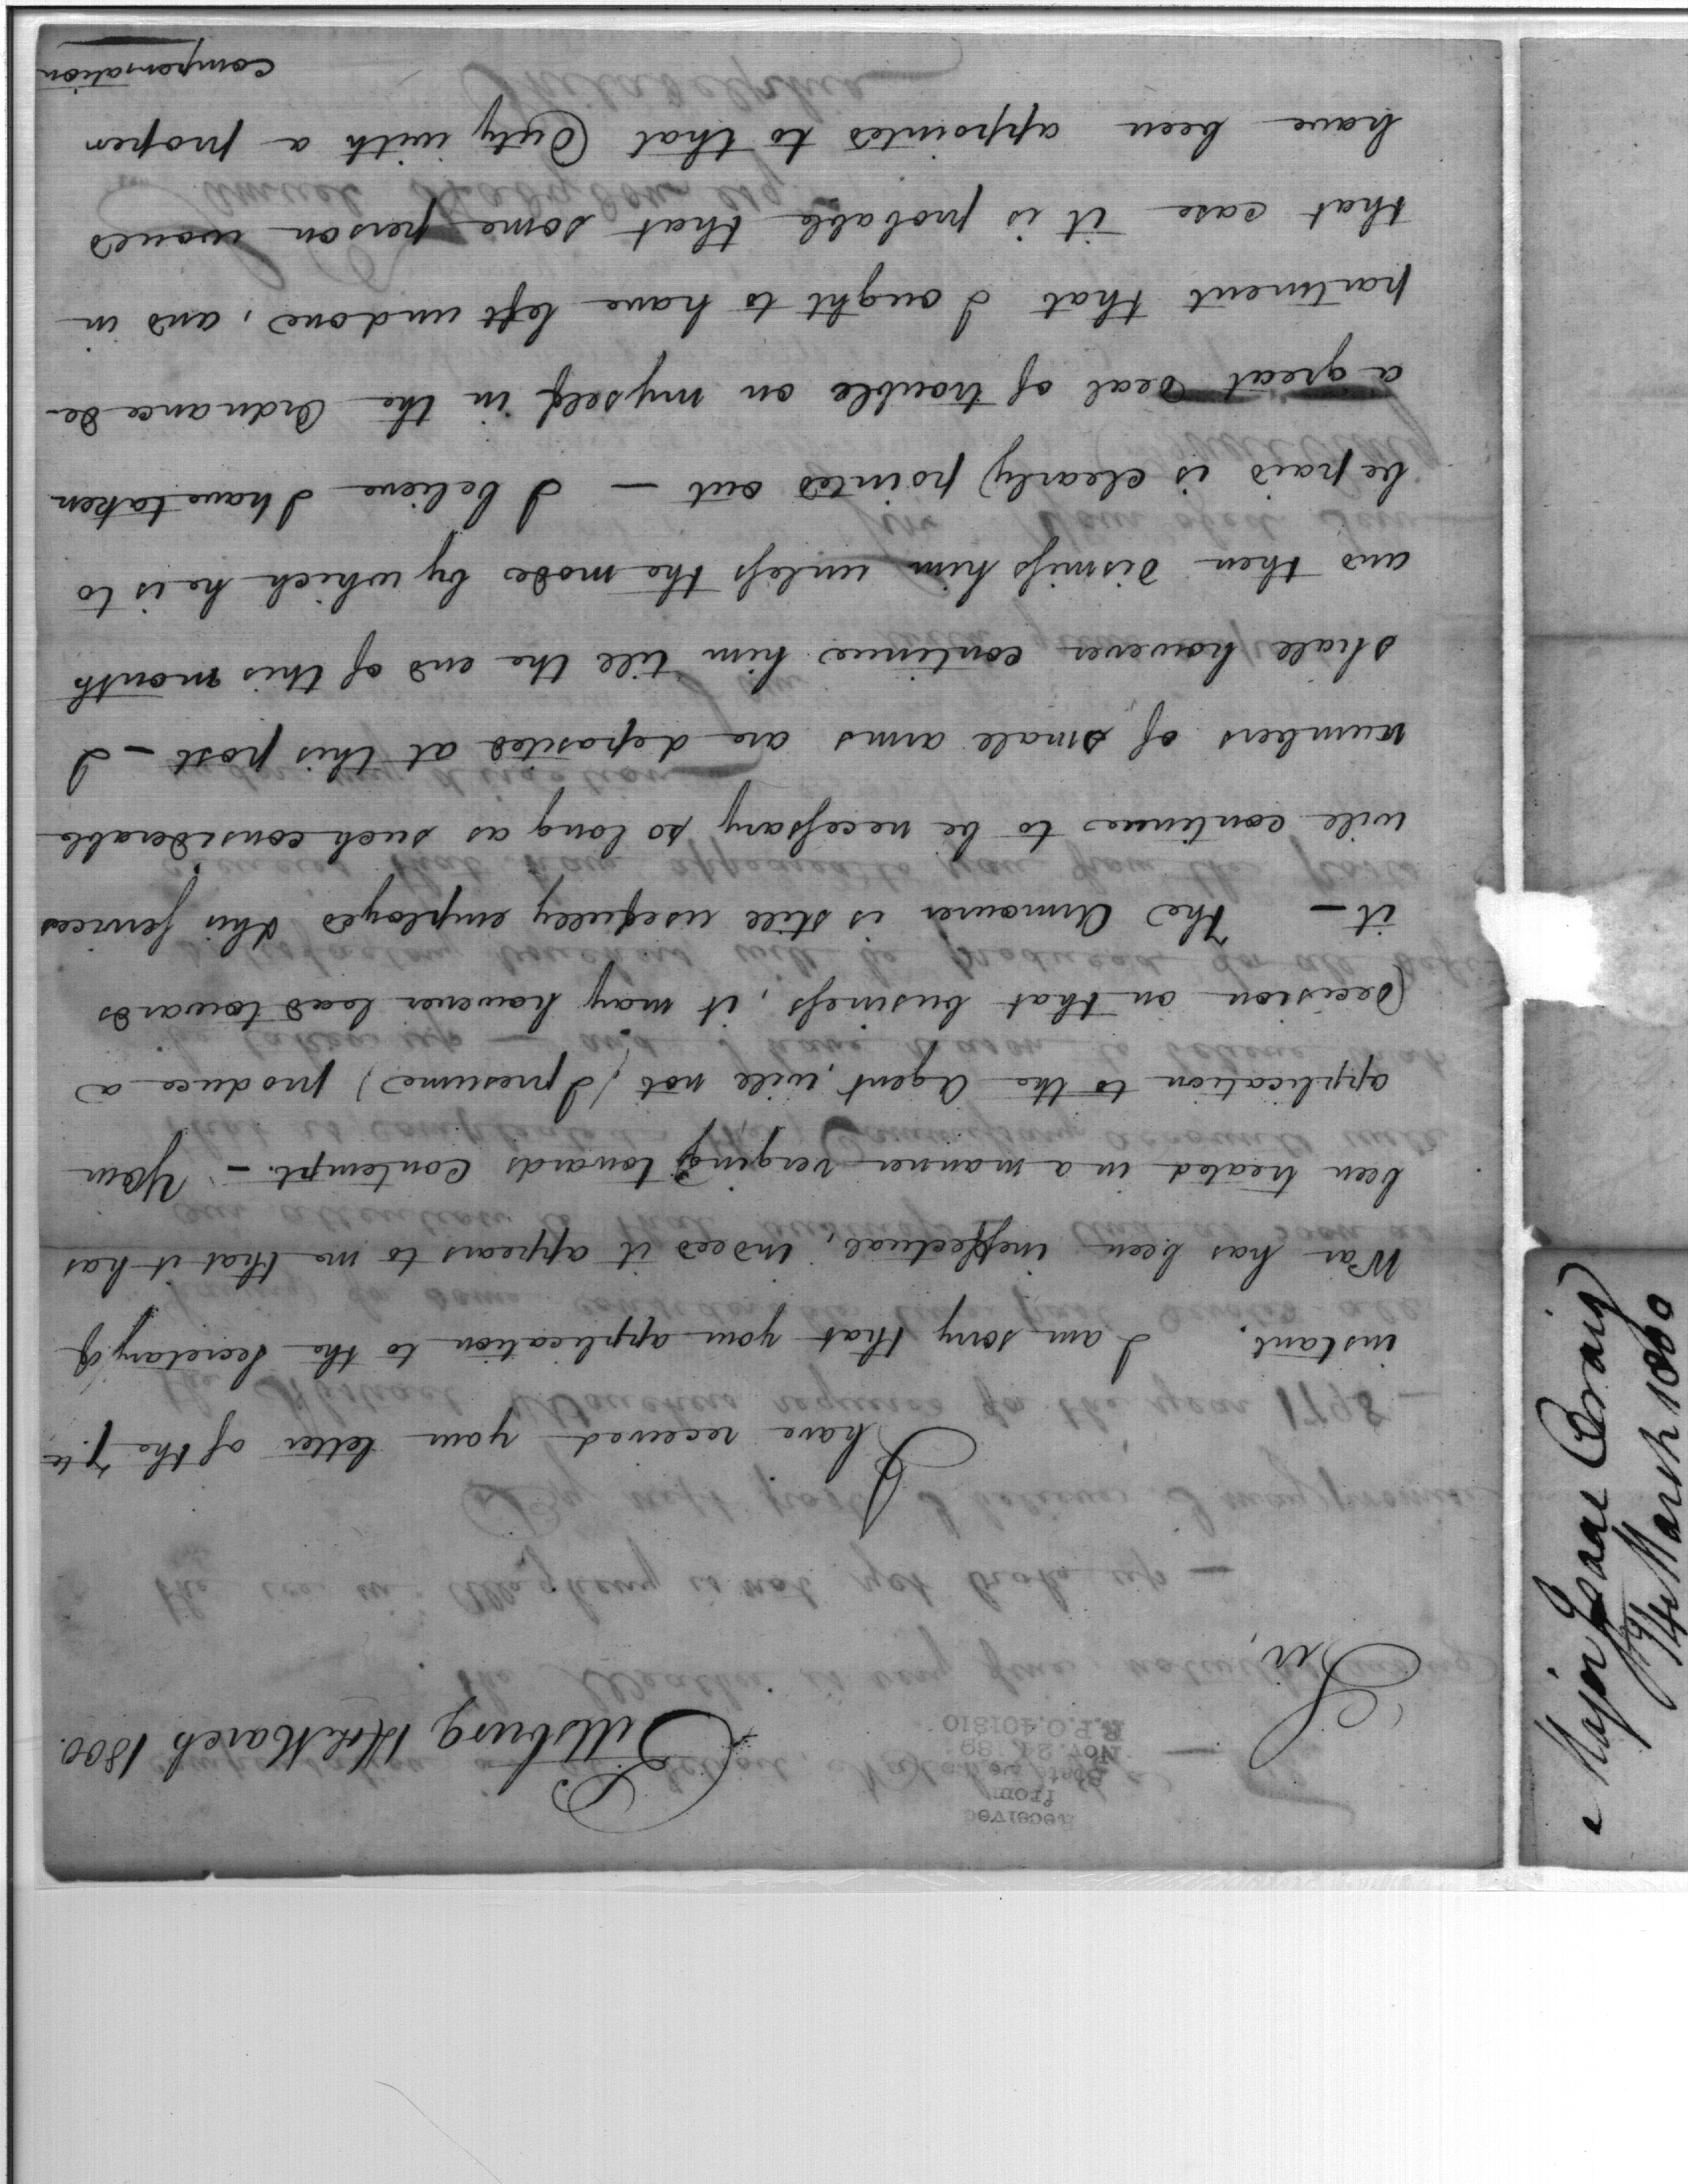 Pittsburg 14th March 1800.
Sir,
I have received your letter of the 7th
instant. I am sorry that your application to the Secretary of
War has been ineffectual, indeed it appears to me that it has
been treated in a manner verging towards contempt. - Your
application to the Agent, will not (I presume) produce a
Decision on that business, it may however lead towards
it - The Armourer is still usefully employed this services
will continue to be necessary so long as such considerable
numbers of small arms are deposited at this post - I
shall however continue him till the end of this month
and then dismiss him unless the mode by which he is to
be paid is clearly pointed out - I believe I have taken
a great deal of trouble on myself in the Ordnance de-
partment that I ought to have left undone, and in
that case it is probable that some person would
have been appointed to that Duty with a proper
compensation
Received
from
Nov. 24
R.P.O. 401810
Major Isaac Craig
14 March 1800